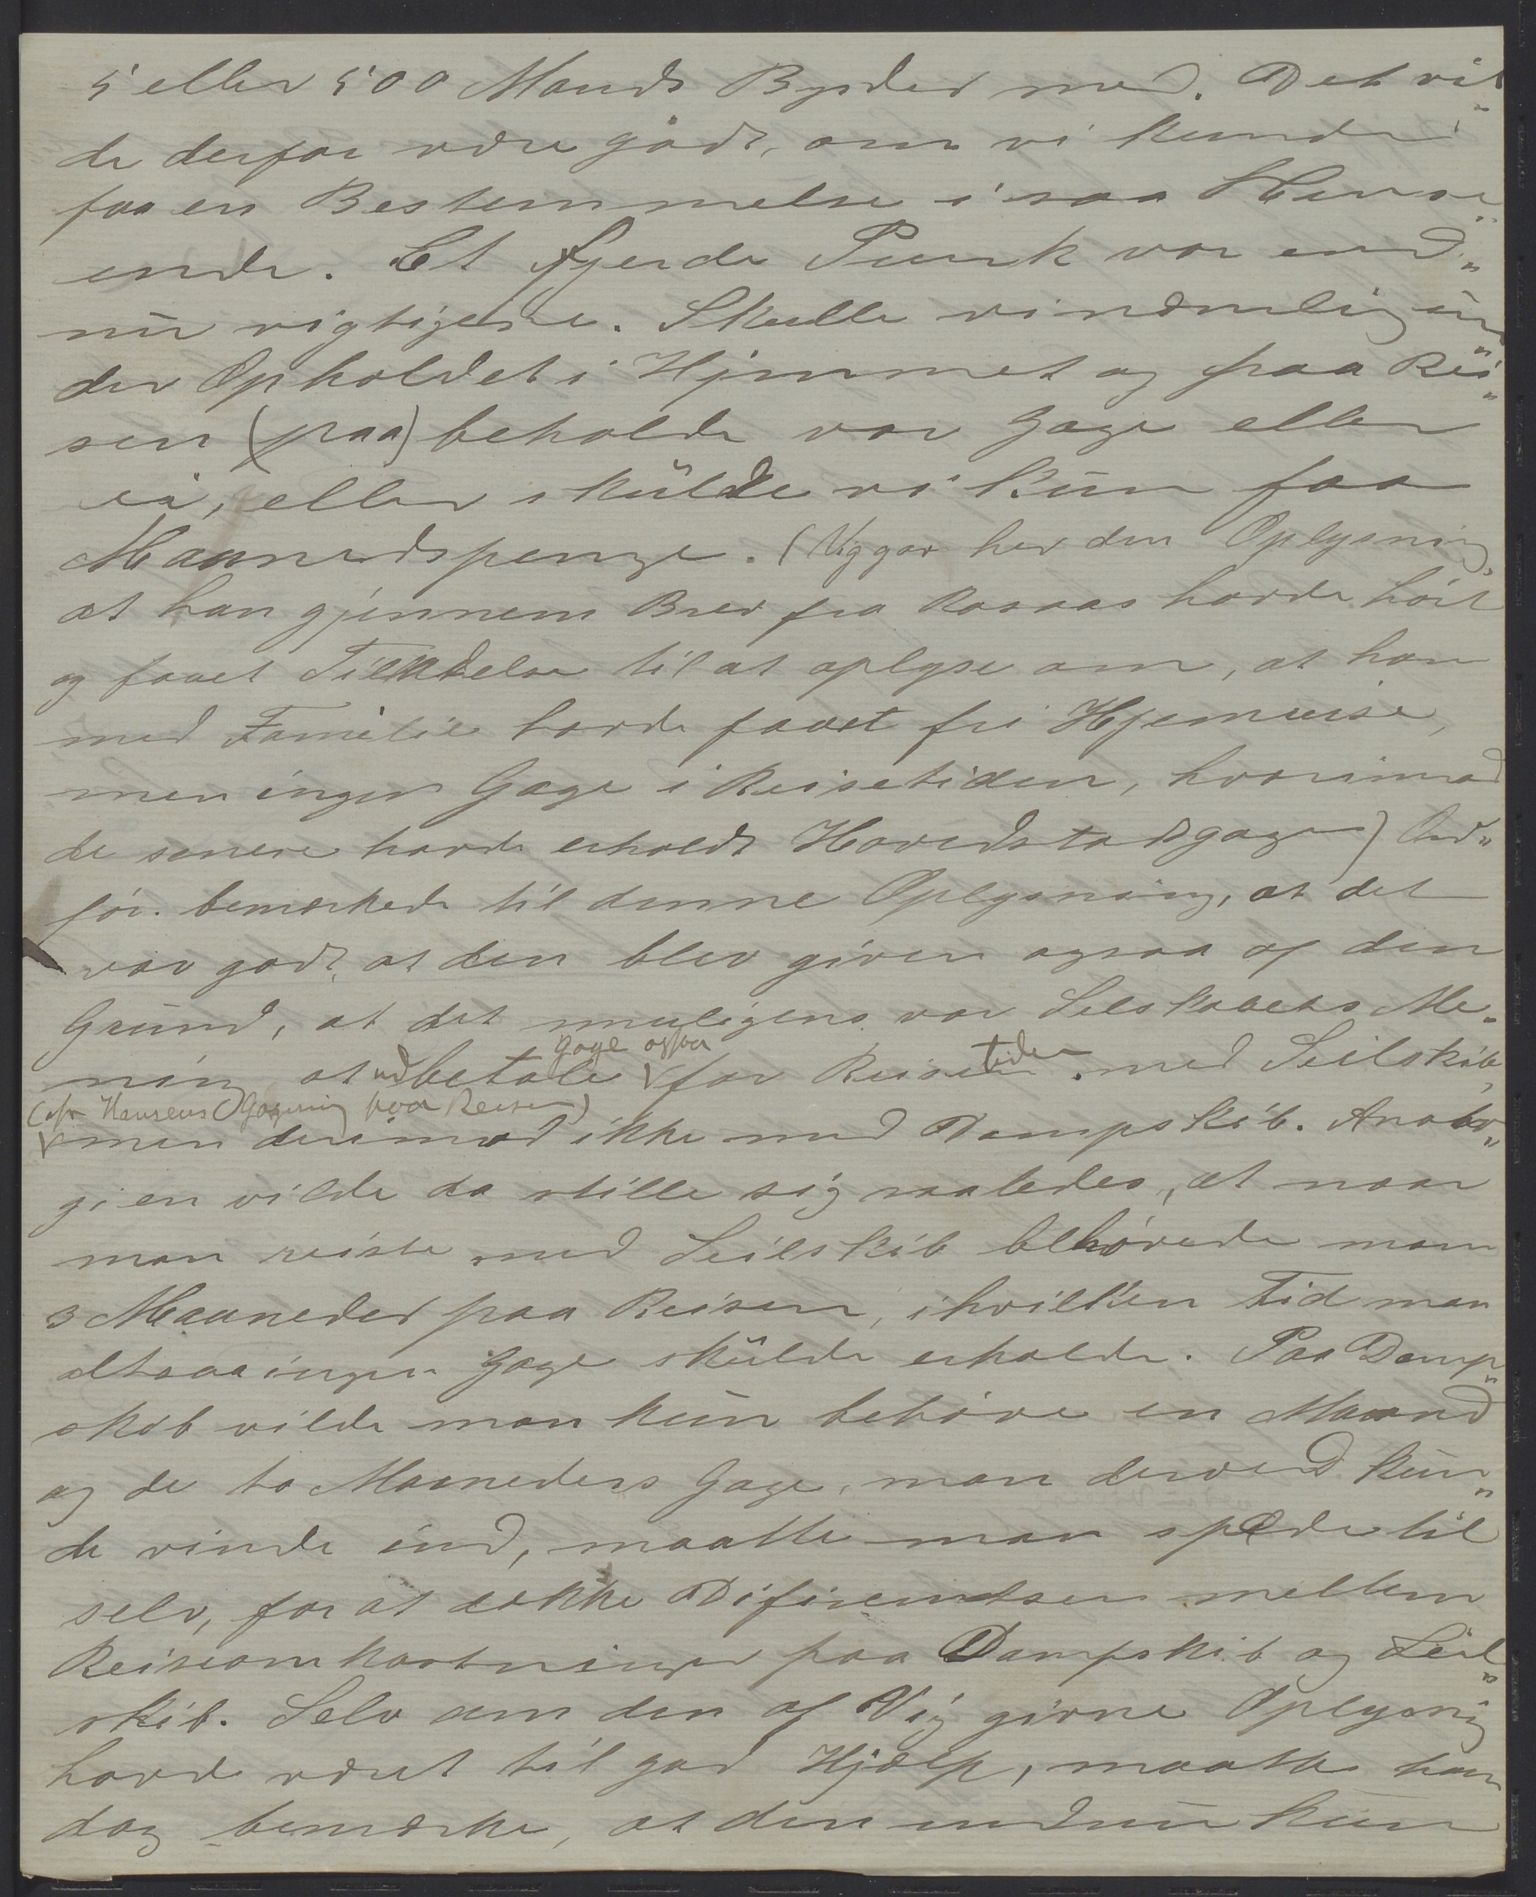 5 eller 500 Mands Byrder med. Det vil„
de derfor være godt, om vi kunde
faa en Bestemmelse i saa Hense„
ende. Et fjerde Punk var end„
nu vigtigere. Skulle vi nemlig un„
der Opholdet i Hjemmet og paa Rei„
sen (paa) beholde vor Gage eller
ei, eller skulde vi kun faa
Maanedspenge. (Vig gav her den Oplysning,
at han gjennem Brev fra Rosaas havde hört
og faaet Tilladelse til at oplyse om, at han
med Familie havde faaet fri Hjemreise,
men ingen Gage i Reisetiden, hvorimod
de senere havde erholdt Hovedstadgagen) Ord„
för. bemærkede til denne Oplysning, at det
var godt, at den blev given ogsaa af den
Grund, at det muligens var Selskabets Me„
ning at udbetale Gage ogsaa for Reisetiden med Seilskib,
(cfr Hansens Gagering paa Reisen)
men derimod ikke med Dampskib. Analo„
gien vilde da stille sig saaledes, at naar
man reiste med Seilskib behövede man
3 Maaneder paa Reisen, i hvilken Tid man
altsaa ingen Gage skulde erholde. Paa Damp„
skib vilde man kun behöve en Maaned
og de to Maaneders Gage, man derved kun„
de vinde ind, maatte man spæde til
selv, for at dække Diferentsen mellem
Reiseomkostninger paa Dampskib og Seil„
skib. Selv om den af Vig givne Oplysning
havde været til god Hjælp, maatte han
dog bemærke, at den endnu kun